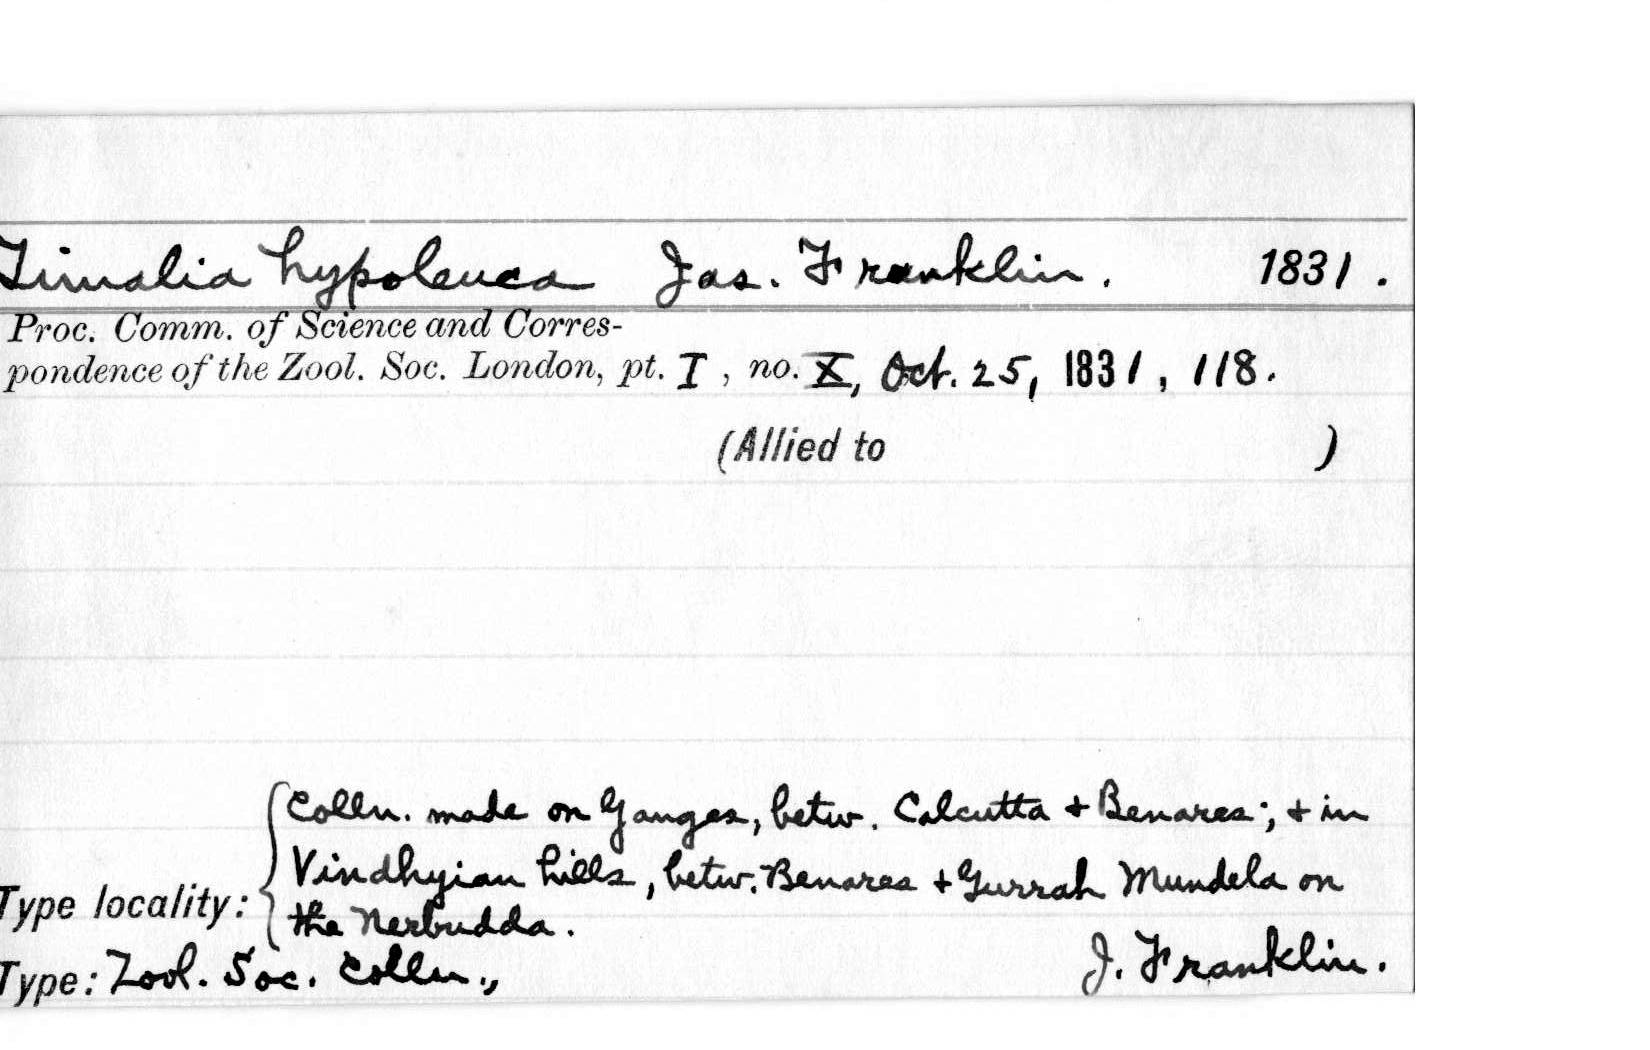 Timalia hypoleuca Jas. Franklin. 1831.
Proc. Comm. of Science and Corres-
pondence of the Zool. Soc. London, pt. I, no. X, Oct. 25, 1831, 118.
(Allied to )
Colln. made on Ganges, betw. Calcutta + Benares; + in
Vindhyian hills, betw. Benares + Gurrah Mundela on
Type locality: the Nerbudda.
Type: Zool. Soc. Colln., J. Franklin.